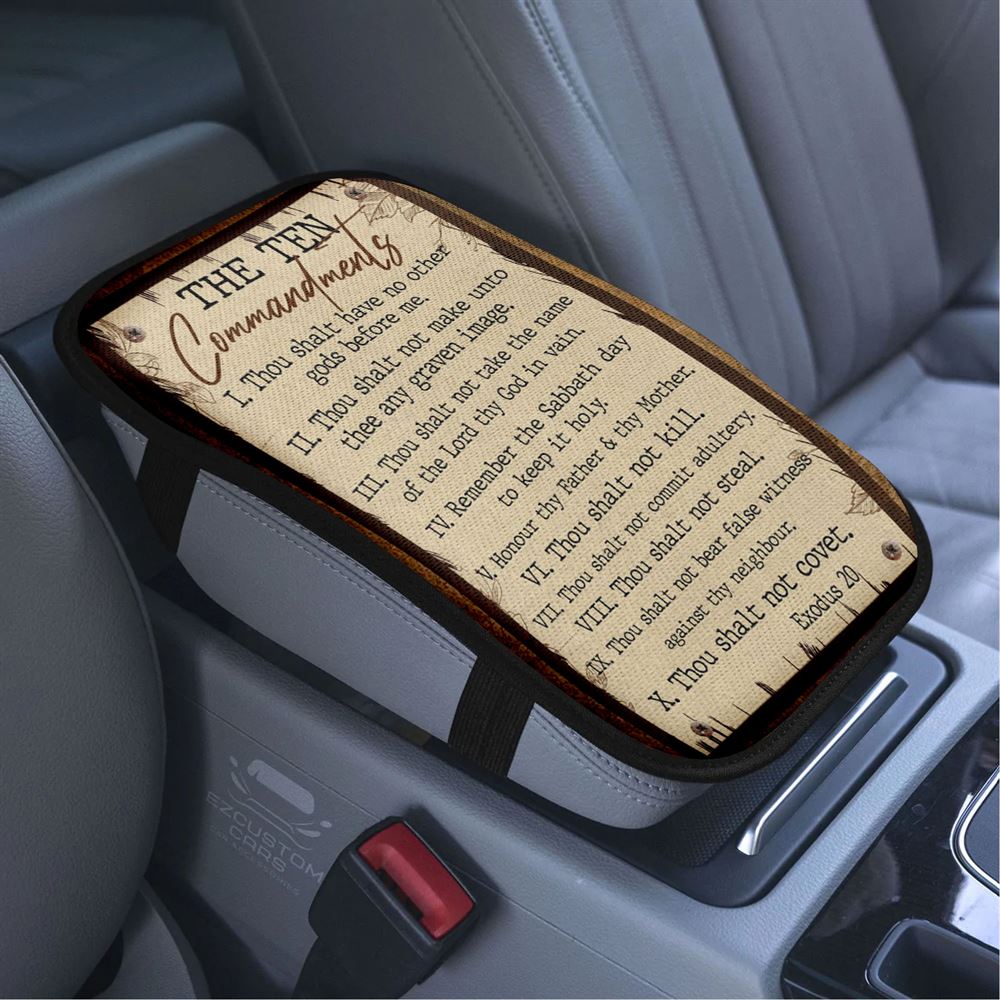 THE TEN
Commandments
I. Thou shalt have no other
gods before me.
II. Thou shalt not make unto
thee any graven image.
III. Thou shalt not take the name
of the Lord thy God in vain.
IV. Remember the Sabbath day
to keep it holy.
V. Honour thy Father & thy Mother.
VI. Thou shalt not kill.
VII. Thou shalt not commit adultery.
VIII. Thou shalt not steal.
IX. Thou shalt not bear false witness
against thy neighbour.
X. Thou shalt not covet.
Exodus 20
EZCUSTOM
CARS